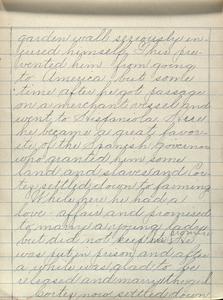 garden wall seriously in-
jured himself. This pre-
vented him from going
to America but some
time after he got passage
on a merchant vessel and
went to Hispaniola. Here
he became a great favor-
ite of the Spanish governor
who granted him some
land and slaves and Cor-
tez settled down to farming
While here he had a
love affair and promised
to marry a young lady
but did not keep his promise. He
was put in prison and after
a while was glad to be
released and marry the girl
Cortez now settled down